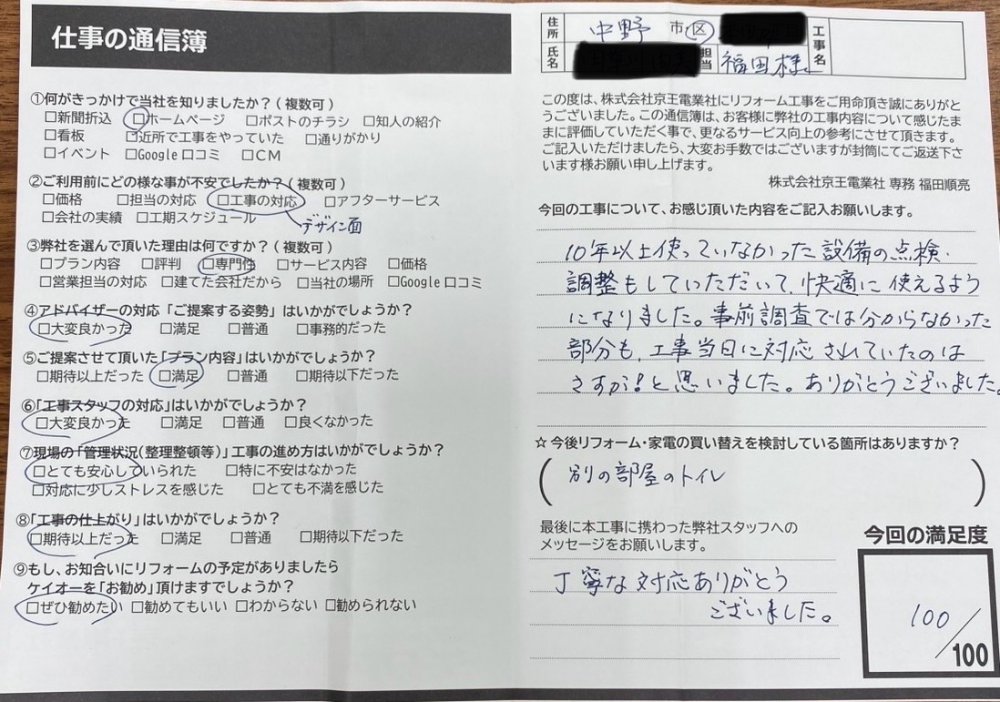 仕事の通信簿
①何がきっかけで当社を知りましたか？(複数可)
□新聞折込 □ホームページ □ポストのチラシ □知人の紹介
□看板 □近所で工事をやっていた □通りがかり
□イベント □Google口コミ □CM
②ご利用前にどの様な事が不安でしたか？(複数可)
□価格 □担当の対応 □工事の対応 □アフターサービス
□会社の実績 □工期スケジュール デザイン面
③弊社を選んで頂いた理由は何ですか？(複数可)
□プラン内容 □評判 □専門性 □サービス内容 □価格
□営業担当の対応 □建てた会社だから □当社の場所 □Google口コミ
④アドバイザーの対応「ご提案する姿勢」はいかがでしょうか？
□大変良かった □満足 □普通 □事務的だった
⑤ご提案させて頂いた「プラン内容」はいかがでしょうか？
□期待以上だった □満足 □普通 □期待以下だった
⑥「工事スタッフの対応」はいかがでしょうか？
□大変良かった □満足 □普通 □良くなかった
⑦現場の「管理状況(整理整頓等)」工事の進め方はいかがでしょうか？
□とても安心していられた □特に不安はなかった
□対応に少しストレスを感じた □とても不満を感じた
⑧「工事の仕上がり」はいかがでしょうか？
□期待以上だった □満足 □普通 □期待以下だった
⑨もし、お知合いにリフォームの予定がありましたら
ケイオーを「お勧め」頂けますでしょうか？
□ぜひ勧めたい □勧めてもいい □わからない □勧められない
住所 中野 市 区 工事名
氏名 担当 福田様
この度は、株式会社京王電業社にリフォーム工事をご用命頂き誠にありがと
うございました。この通信簿は、お客様に弊社の工事内容について感じたま
まに評価していただく事で、更なるサービス向上の参考にさせて頂きます。
ご記入いただけましたら、大変お手数ではございますが封筒にてご返送下さ
います様お願い申し上げます。
株式会社京王電業社 専務 福田順亮
今回の工事について、お感じ頂いた内容をご記入お願いします。
10年以上使っていなかった設備の点検・
調整もしていただいて、快適に使えるよう
になりました。事前調査では分からなかった
部分も、工事当日に対応されていたのは
さすが!と思いました。ありがとうございました。
☆今後リフォーム・家電の買い替えを検討している箇所はありますか？
(別の部屋のトイレ)
最後に本工事に携わった弊社スタッフへの
メッセージをお願いします。
丁寧な対応ありがとう
ございました。
今回の満足度
100/100